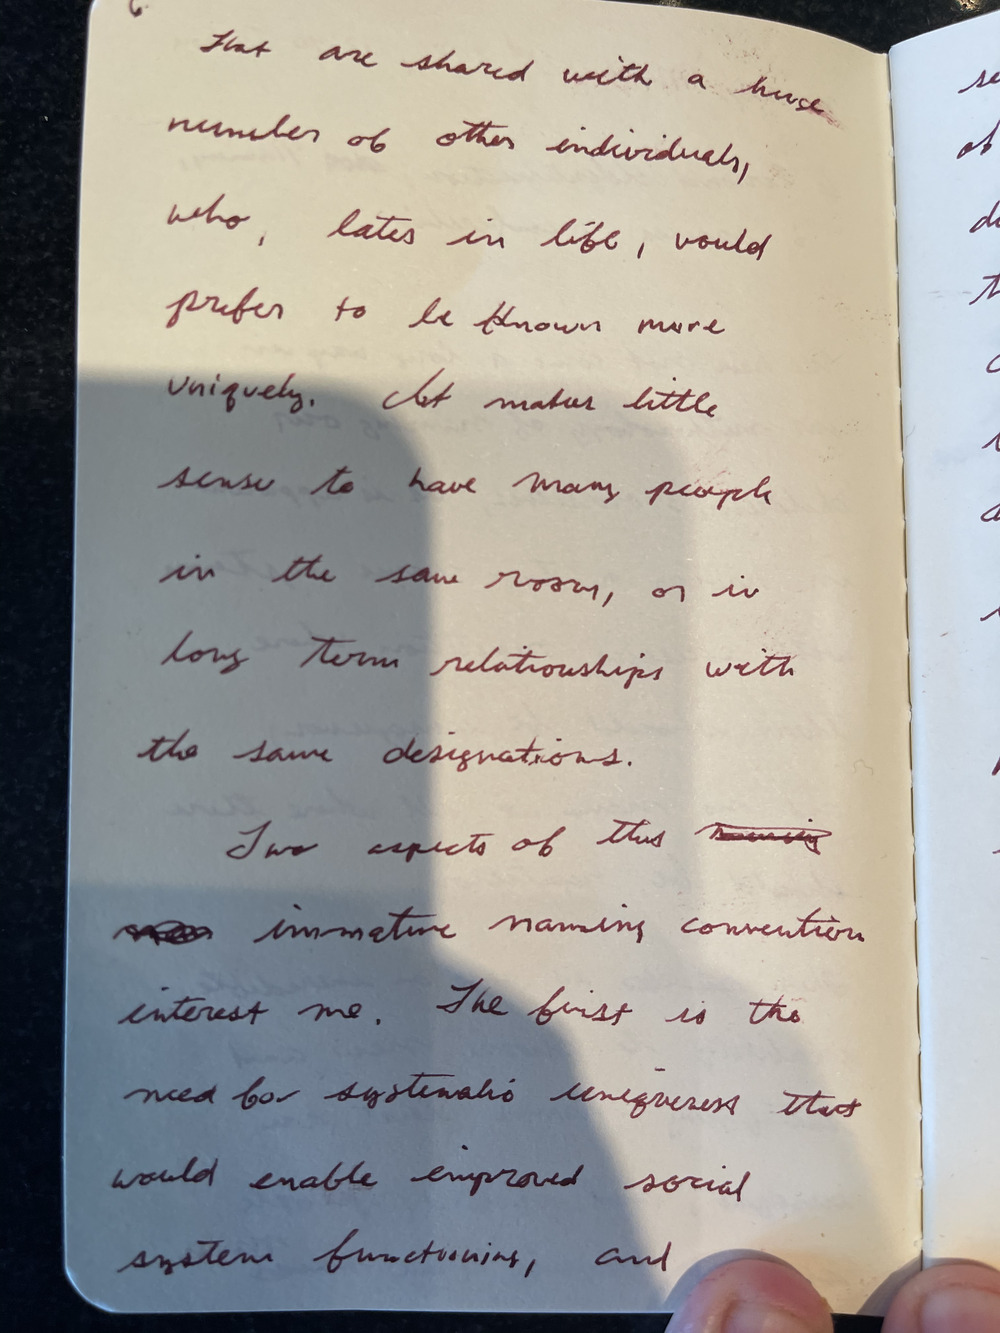 6.
that are shared with a huge
number of other individuals,
who, later in life, would
prefer to be known more
uniquely. It makes little
sense to have many people
in the same room, or in
long term relationships with
the same designations.
Two aspects of this naming
immature naming convention
interest me. The first is the
need for systematic uniqueness that
would enable improved social
system functioning, and
se
of